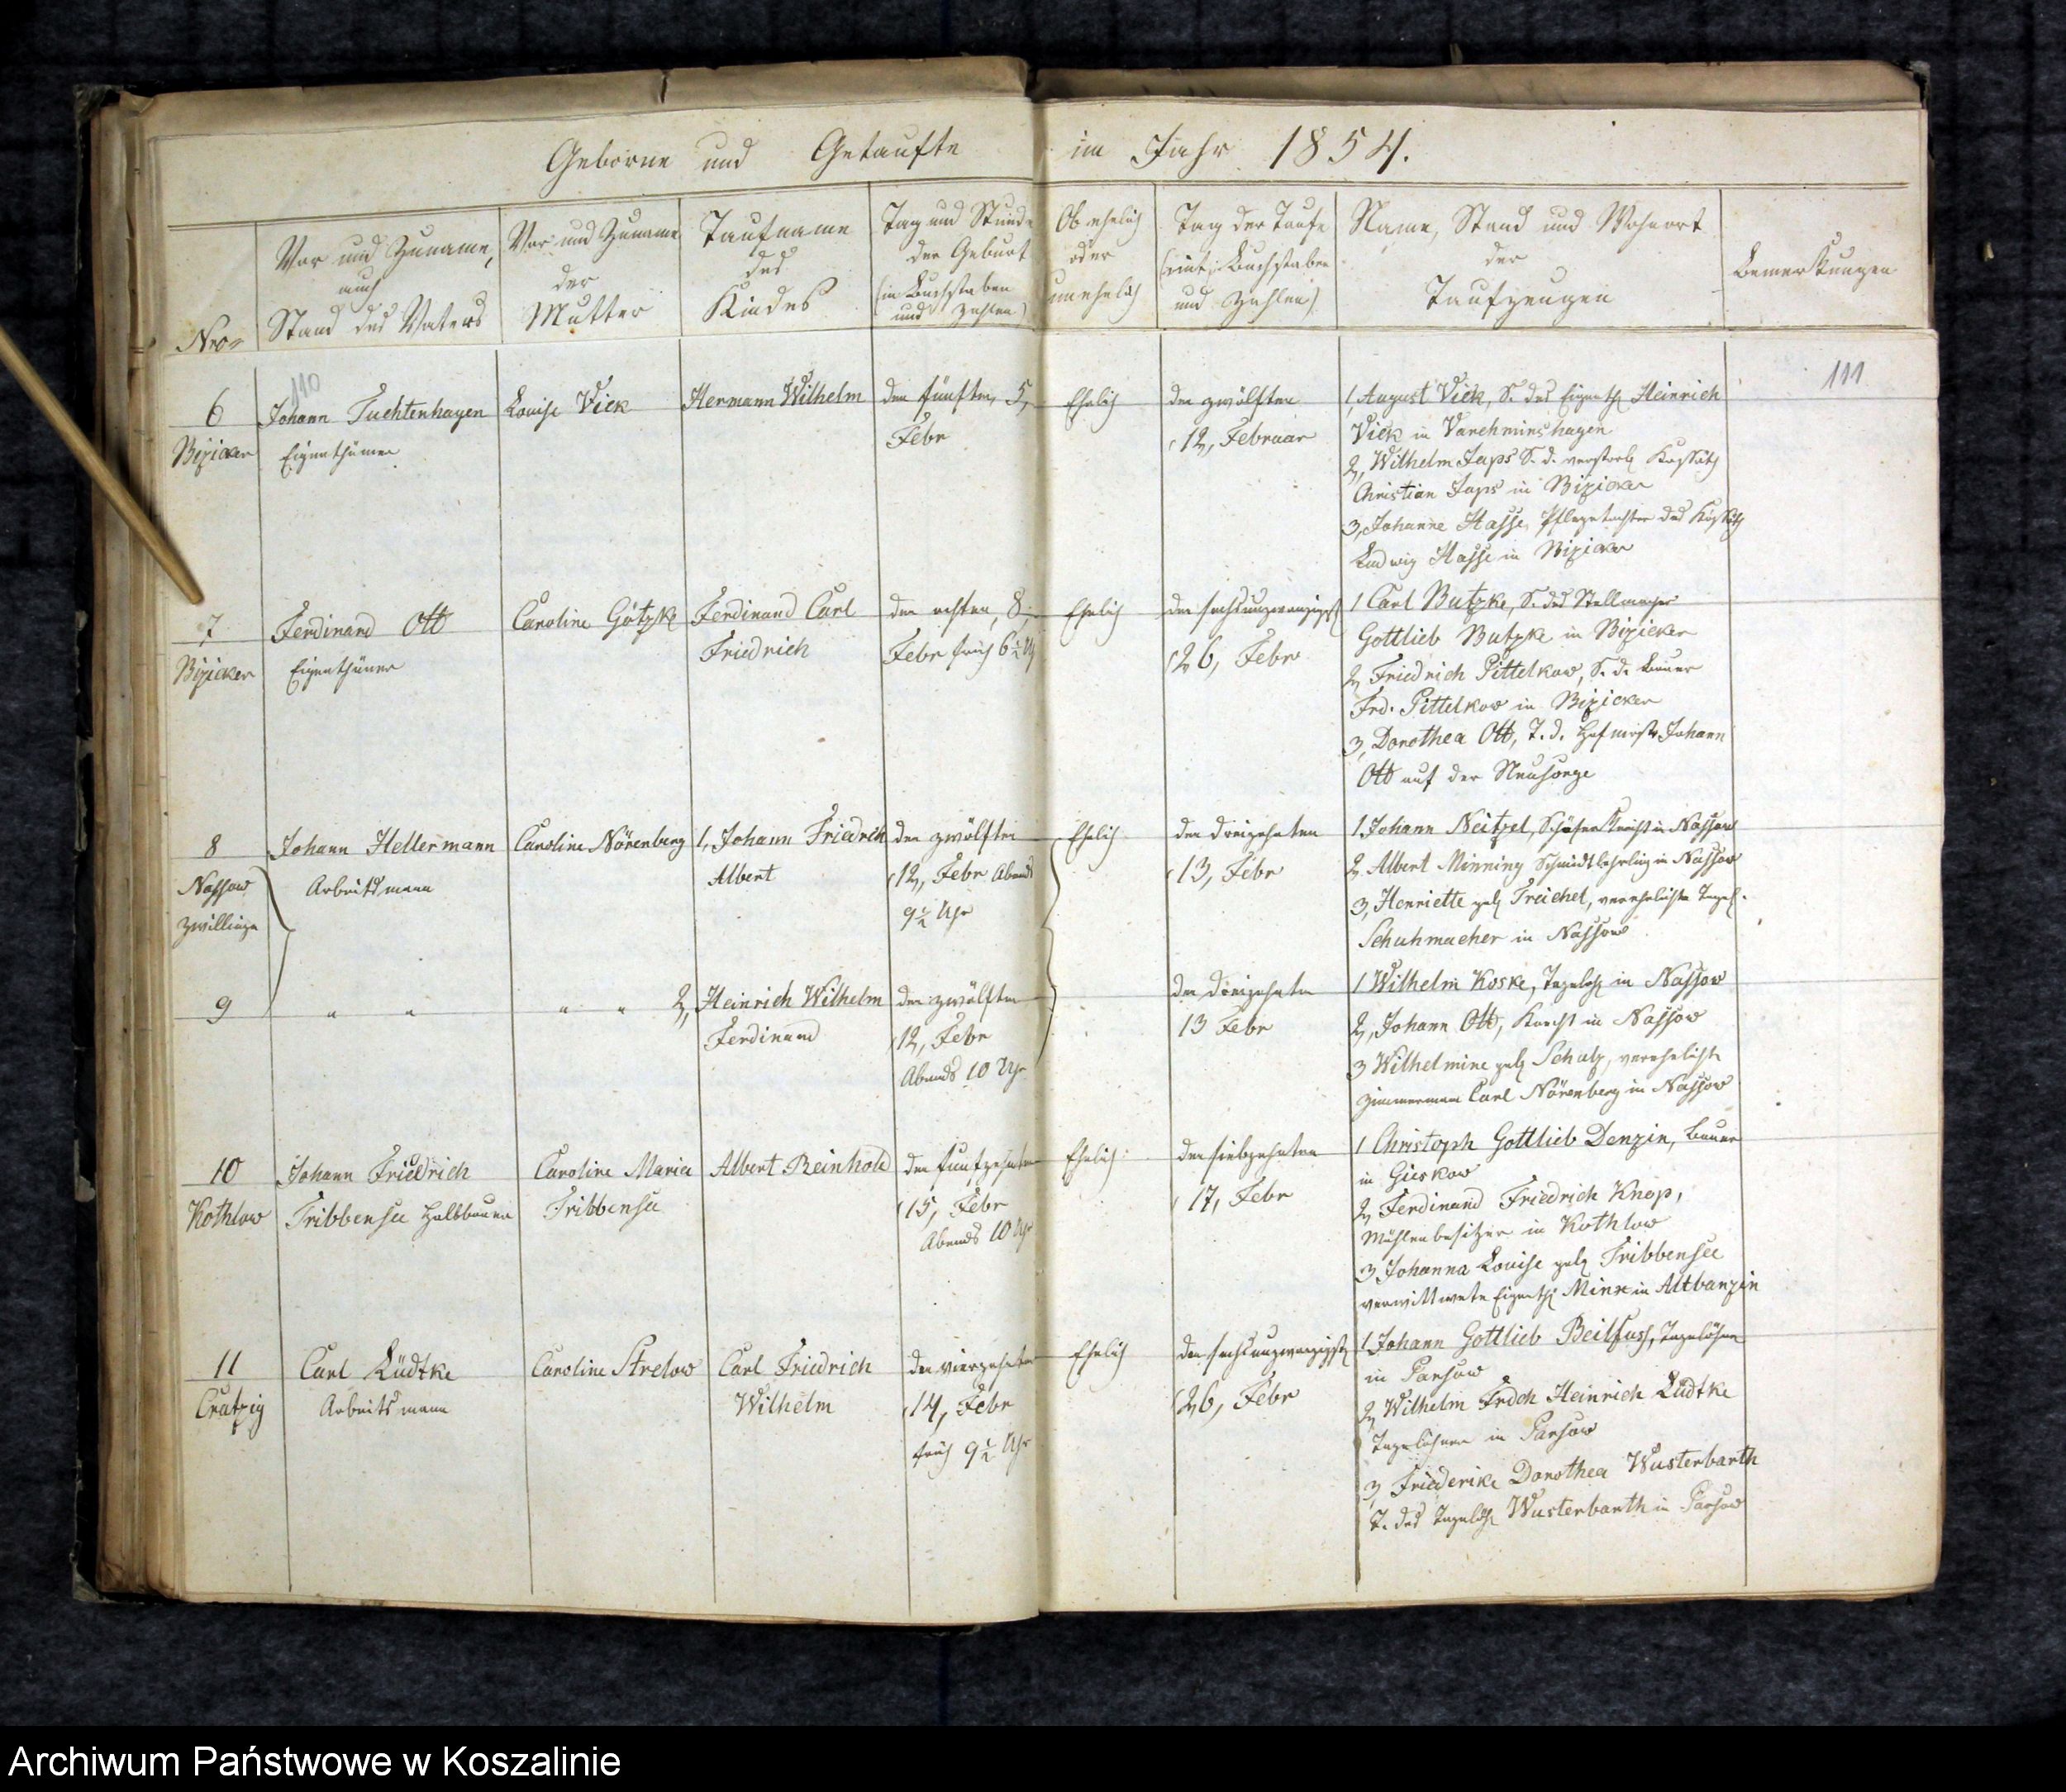 Geborne und Getaufte im Jahr 1854.
Nro.
Vor und Zuname,
auch
Stand des Vaters
Vor und Zuname
der
Mutter
Taufname
des
Kindes
Tag und Stunde
der Geburt
(in Buchstaben
und Zahlen)
Ob ehelich
oder
unehelich
Tag der Taufe
(mit Buchstaben
und Zahlen)
Name, Stand und Wohnort
der
Taufzeugen
Bemerkungen
110
111
6
Bizicker
Johann Tuchtenhagen
Eigenthümer
Louise Vick
Hermann Wilhelm
den fünften, 5,
Febr
Ehelich
den zwölften
12, Februar
1, August Vick, S. des Eigenth Heinrich
Vick in Varchminshagen
2, Wilhelm Japs S. d. verstorb Kossäth
Christian Japs in Bizicker
3, Johanne Hasse, Pflegetochter des Kossäth
Ludwig Hasse in Bizicker
7
Bizicker
Ferdinand Ott
Eigenthümer
Caroline Götzke
Ferdinand Carl
Friedrich
den achten, 8,
Febr früh 6½ U
Ehelich
den sechsundzwanzigst
26, Febr
1 Carl Butzke, S. des Stellmacher
Gottlieb Butzke in Bizicker
2, Friedrich Pittelkow, S. d. Bauer
Frd. Pittelkow in Bizicker
3, Dorothea Ott, T. d. Hofmstr Johann
Ott auf der Neusorge
8
Nassow
Zwillinge
Johann Hellermann
Arbeitsmann
Caroline Nörenberg
1, Johann Friedrich
Albert
den zwölften
12, Febr Abends
9½ Uhr
Ehelich
den dreizehnten
13, Febr
1 Johann Neitzel, Schäferknecht in Nassow
2, Albert Minning Schmidtlehrling in Nassow
3, Henriette geb Treichel, verehelichte Tagel.
Schuhmacher in Nassow
9
" "
" "
2, Heinrich Wilhelm
Ferdinand
den zwölften
12, Febr
Abends 10 Uhr
den dreizehnten
13 Febr
1 Wilhelm Koske, Tagelöh in Nassow
2, Johann Ott, Knecht in Nassow
3 Wilhelmine geb Schulz, verehelicht
Zimmermann Carl Nörenberg in Nassow
10
Kothlow
Johann Friedrich
Tribbensee Halbbauer
Caroline Maria
Tribbensee
Albert Reinhold
den funfzehnten
15, Febr
Abends 10 Uhr
Ehelich
den siebzehnten
17, Febr
1 Christoph Gottlieb Denzin, Bauer
in Gieskow
2, Ferdinand Friedrich Knop,
Mühlenbesitzer in Kothlow
3 Johanna Louise geb Tribbensee
verwittwete Eigenth Mink in Altbanzin
11
Cratzig
Carl Lüdtke
Arbeitsmann
Caroline Strelow
Carl Friedrich
Wilhelm
den vierzehnten
14, Febr
früh 9½ Uhr
Ehelich
den sechsundzwanzigst
26, Febr
1 Johann Gottlieb Beilfuss, Tagelöhner
in Parsow
2, Wilhelm Frdch Heinrich Lüdtke
Tagelöhner in Parsow
3, Friederike Dorothea Wusterbarth
T. des Tagelöh Wusterbarth in Parsow
Archiwum Państwowe w Koszalinie